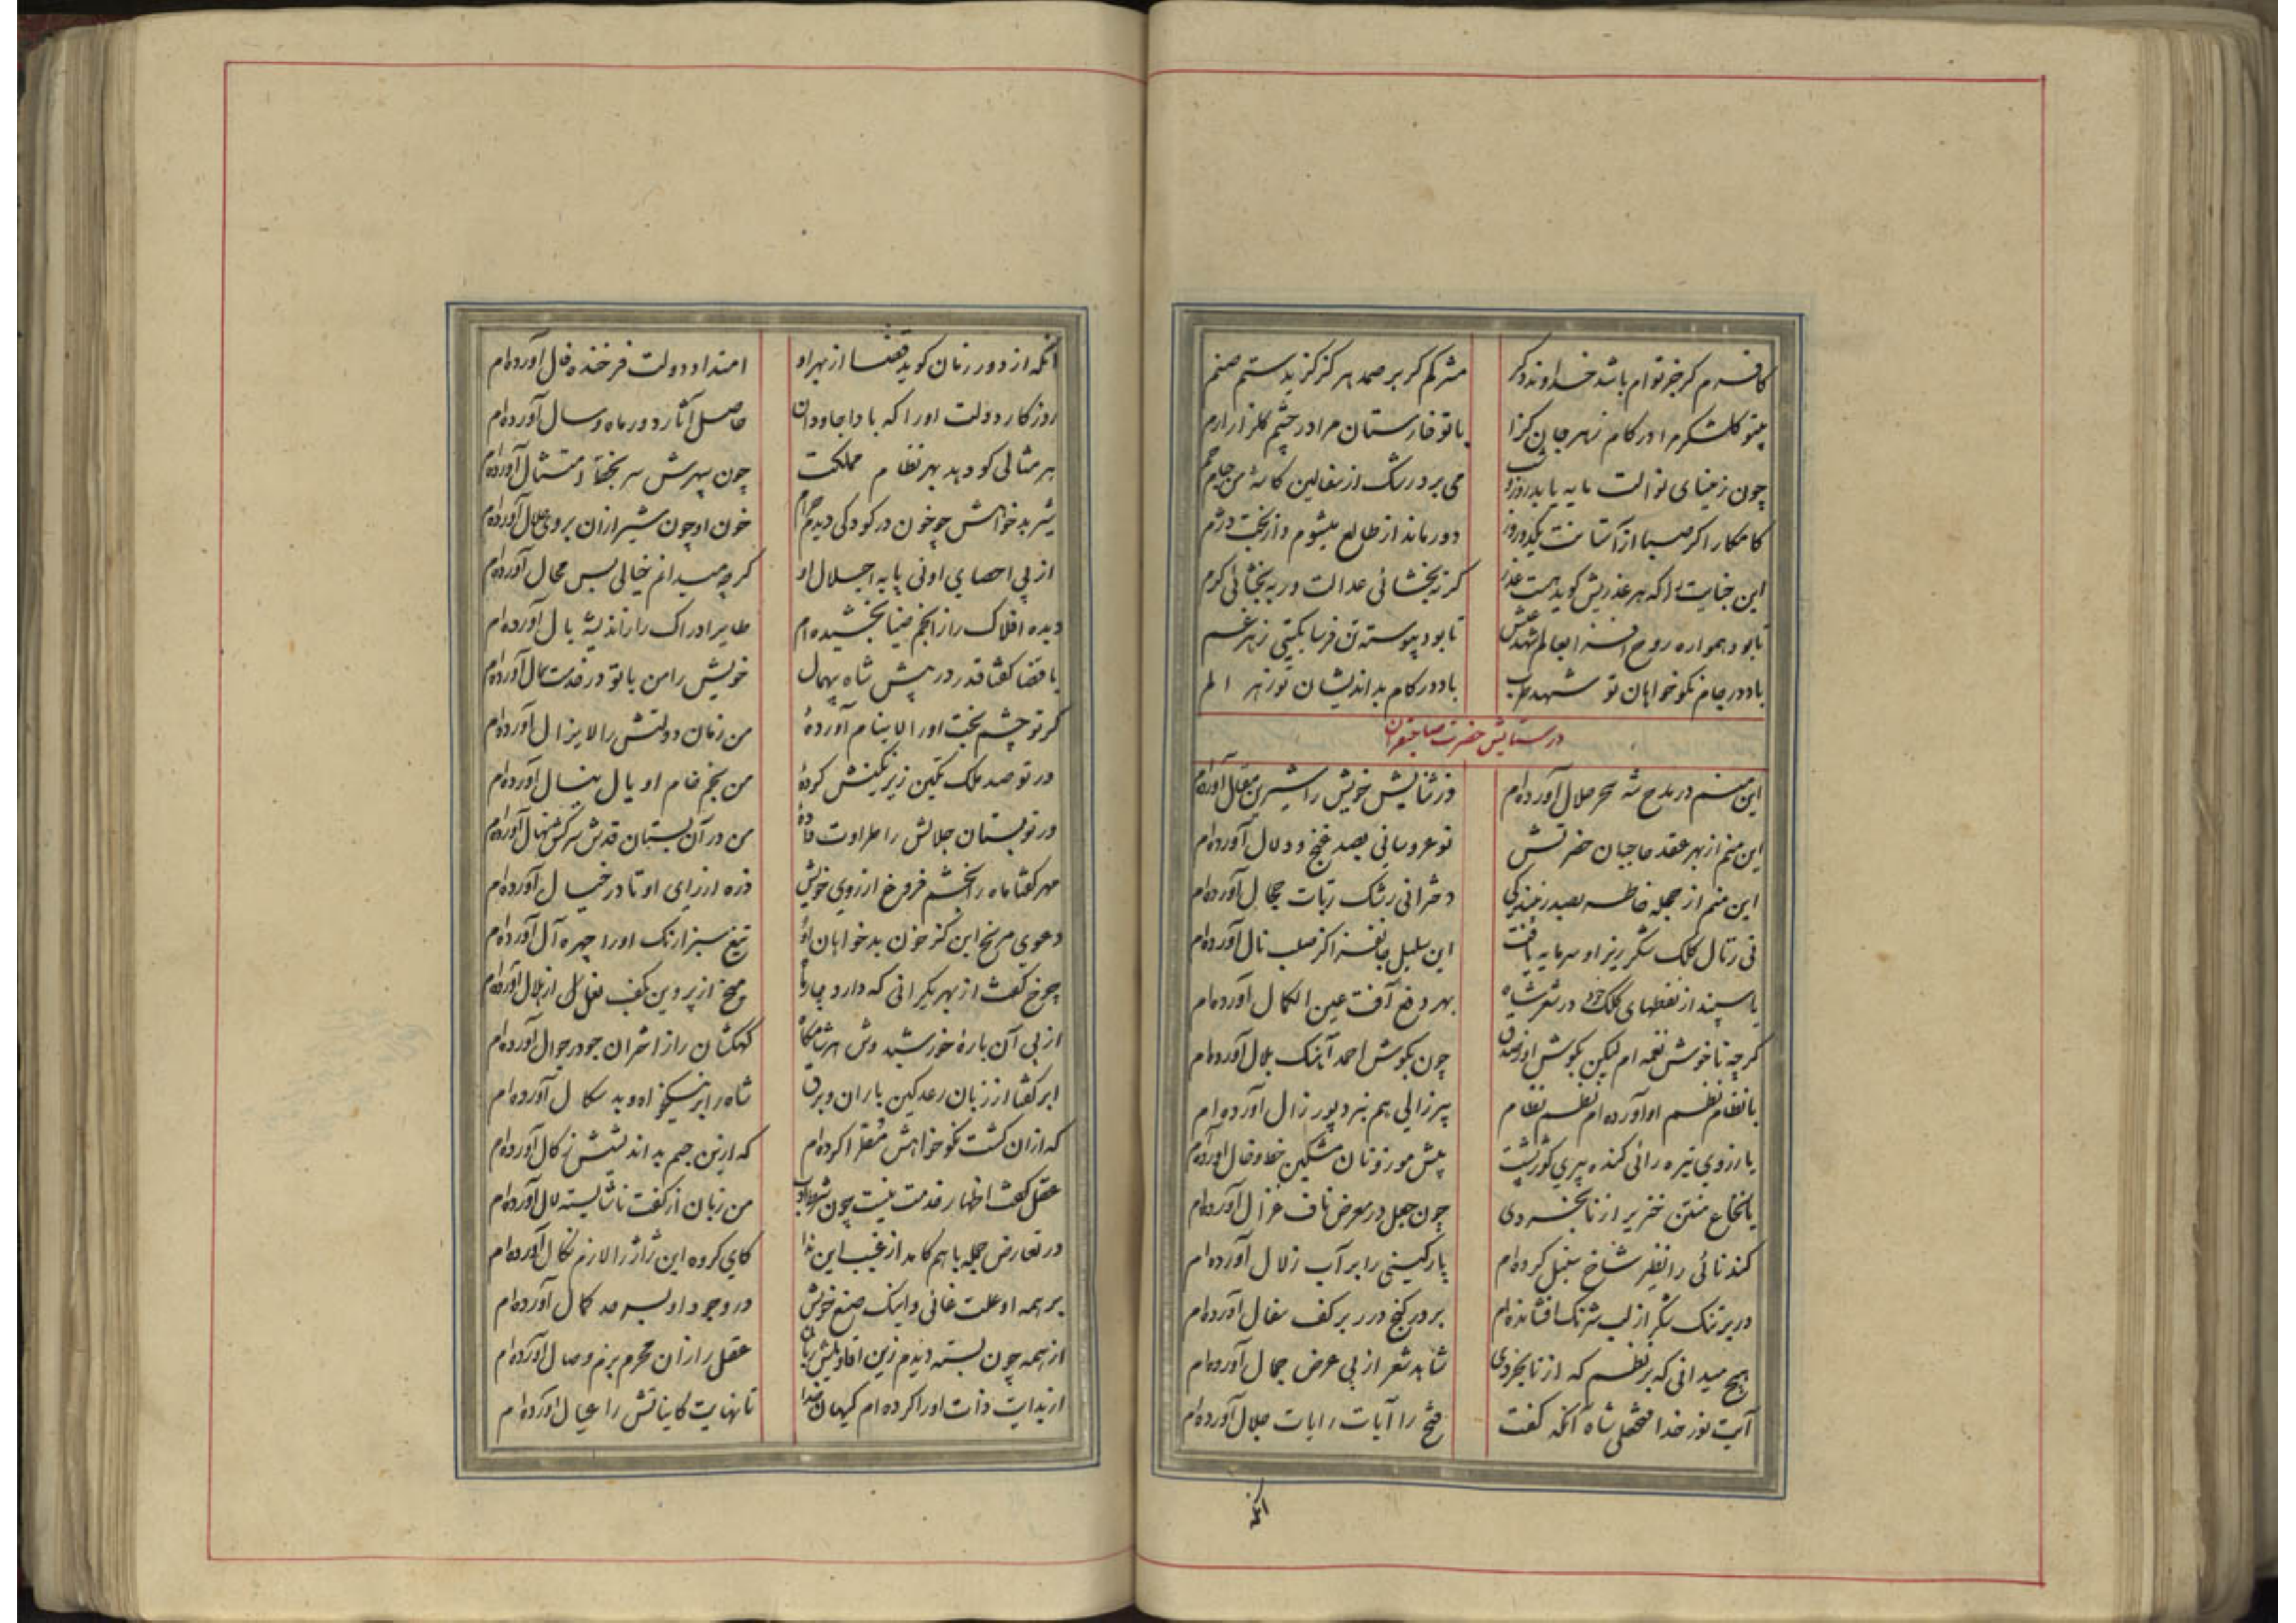 کافرم کر جز توام باشد خداوند دکر مشرکم کر بر صمد هرکز کزیدستم صنم
بیتو کلشکر مرا در کام زهر جان کزا با تو خارستان مرا در چشم کلزار ارم
چون ز مینای نوالت مایه یابد روز و شب می برد رشک از سفالین کاسه من جام جم
کامکارا کر صبا از آستانت یکدو روز دور ماند از طالع میشوم و از بخت دژم
این جنایت را که هر عذریش کوید هست عذر کر نه بخشائی عدالت ور به بخشائی کرم
تا بود همواره روح افزا بعالم شهد عیش تا بود پیوسته تن فرسا بکیتی زهر غم
باد در جام نکو خواهان تو شهد طرب باد در کام بد اندیشان تو زهر الم
در ستایش حضرت صاحبقران
این منم در مدح شه سحر حلال آورده‌ام وز ثنایش خویش را شیرین مقال آورده‌ام
این منم از بهر عقد حاجبان حضرتش نو عروسانی بصد غنج و دلال آورده‌ام
این منم از حجله خاطر بصد زیبندکی دخترانی رشک ربات حجال آورده‌ام
نی ز نال کلک شکر ریز او سرمایه یافت این بلبل جانفزا کز صلب نال آورده‌ام
یا سپند از نقطهای کلک خود در شعر شاه بهر دفع آفت عین الکمال آورده‌ام
کرچه ناخوش نغمه‌ام لیکن بکوش اهل چون بکوش احمد آهنک بلال آورده‌ام
با نظام نظم او آورده‌ام نظم نظام پیر زالی هم نبرد پور زال آورده‌ام
یا ز روی تیره رانی کنده پیری کوژ پشت پیش موزونان مشکین خط و خال آورده‌ام
یا نخاع منتن خنزیر از نابخردی چون جعل در معرض ناف غزال آورده‌ام
کندنائی را نظیر شاخ سنبل کرده‌ام پارکینی را بر آب زلال آورده‌ام
در بر تنک شکر از لب شرنک افشانده‌ام بر در کنج درر بر کف سفال آورده‌ام
هیچ میدانی که بر نظم که از نابخردی شاهد شعر از پی عرض جمال آورده‌ام
آیت نور خدا فتحعلی شاه آنکه کفت فتح را آیات رایات جلال آورده‌ام
آنکه
آنکه از دور زمان کوید قضا از بهر او امتداد دولت فرخنده فال آورده‌ام
روزکار دولت او را که بادا جاودان حاصل آثار دور ماه و سال آورده‌ام
هر مثالی کو دهد بهر نظام مملکت چون سپهرش سر بخط امتثال آورده‌ام
شیر بدخواهش چو خون در کودکی دیدم حرام خون او چون شیر از آن بر وی حلال آورده‌ام
از پی احصای اونی پایه اجلال او کرچه میدانم خیالی بس محال آورده‌ام
دیده افلاک را ز انجم ضیا بخشیده‌ام طایر ادراک را ز اندیشه بال آورده‌ام
با قضا کفتا قدر در پیش شاه بیهمال خویش را من با تو در خدمت همال آورده‌ام
کر تو چشم بخت او را لاینام آورده من زمان دولتش را لایزال آورده‌ام
ور تو صد ملک تکین زیر نکینش کرده من بخم خام او یال ینال آورده‌ام
ور تو بستان جلالش را طراوت داده من در آن بستان قدش سرکش نهال آورده‌ام
مهر کفتا ماه را بخشم فروغ از روی خویش ذره از رای او تا در خیال آورده‌ام
دعوی مریخ این کز خون بدخواهان او تیغ سبزا رنک او را چهره آل آورده‌ام
چرخ کفت از بهر یکرانی که دارد میخ از پروین بکف نعل از هلال آورده‌ام
از پی آن باره خورشید وش هر شامکاه کهکشان را ز اختران جو در جوال آورده‌ام
ابر کفتا از زبان رعد کین باران و برق شاه را بر نیکخواه و بد سکال آورده‌ام
که از آن کشت نکو خواهش مقطر کرده‌ام که از این جسم بد اندیشش زکال آورده‌ام
عقل کفت اظهار خدمت نیست چون شرط ادب من زبان از کفت ناشایسته لال آورده‌ام
در تعارض جمله با هم کامد از غیب این ندا کای کروه این ژاژ را لازم نکال آورده‌ام
بر همه او علت غائی و اینک صنع خویش در وجود او بسر حد کمال آورده‌ام
از همه چون بسته دیدم زین افاویلش زبان عقل را زان محرم بزم وصال آورده‌ام
از بدایت ذات او را کرده‌ام کیهان خدا تا نهایت کایناتش را عیال آورده‌ام